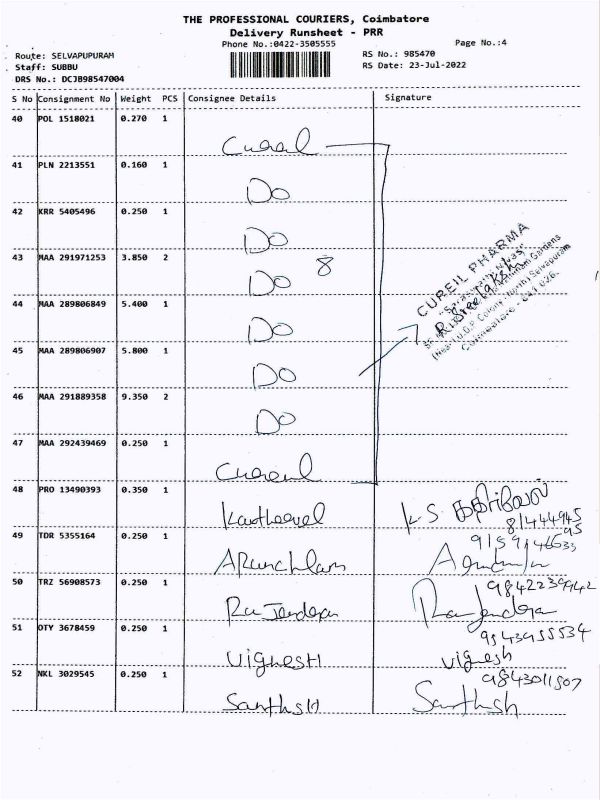 THE PROFESSIONAL COURIERS, Coimbatore
Delivery Runsheet - PRR
Phone No.:0422-3505555
Page No.:4
Route: SELVAPUPURAM
Staff: SUBBU
DRS No.: DCJB98547004
RS No.: 985470
RS Date: 23-Jul-2022
S No Consignment No Weight PCS Consignee Details Signature
40 POL 1518021 0.270 1
41 PLN 2213551 0.160 1 Do
42 KRR 5405496 0.250 1 Do
43 MAA 291971253 3.850 2 Do 8
44 MAA 289806849 5.400 1 Do
45 MAA 289806907 5.800 1 Do
46 MAA 291889358 9.350 2 Do
47 MAA 292439469 0.250 1
CUREIL PHARMA
48 PRO 13490393 0.350 1 Kartheevel K.S. கதிர்வேல்
49 TDR 5355164 0.250 1
50 TRZ 56908573 0.250 1 Rajendera 9842239942 Rajendera
51 OTY 3678459 0.250 1 VignesH 9543955534 vignesh
52 NKL 3029545 0.250 1 SanthsH 9843011507 Santhsh